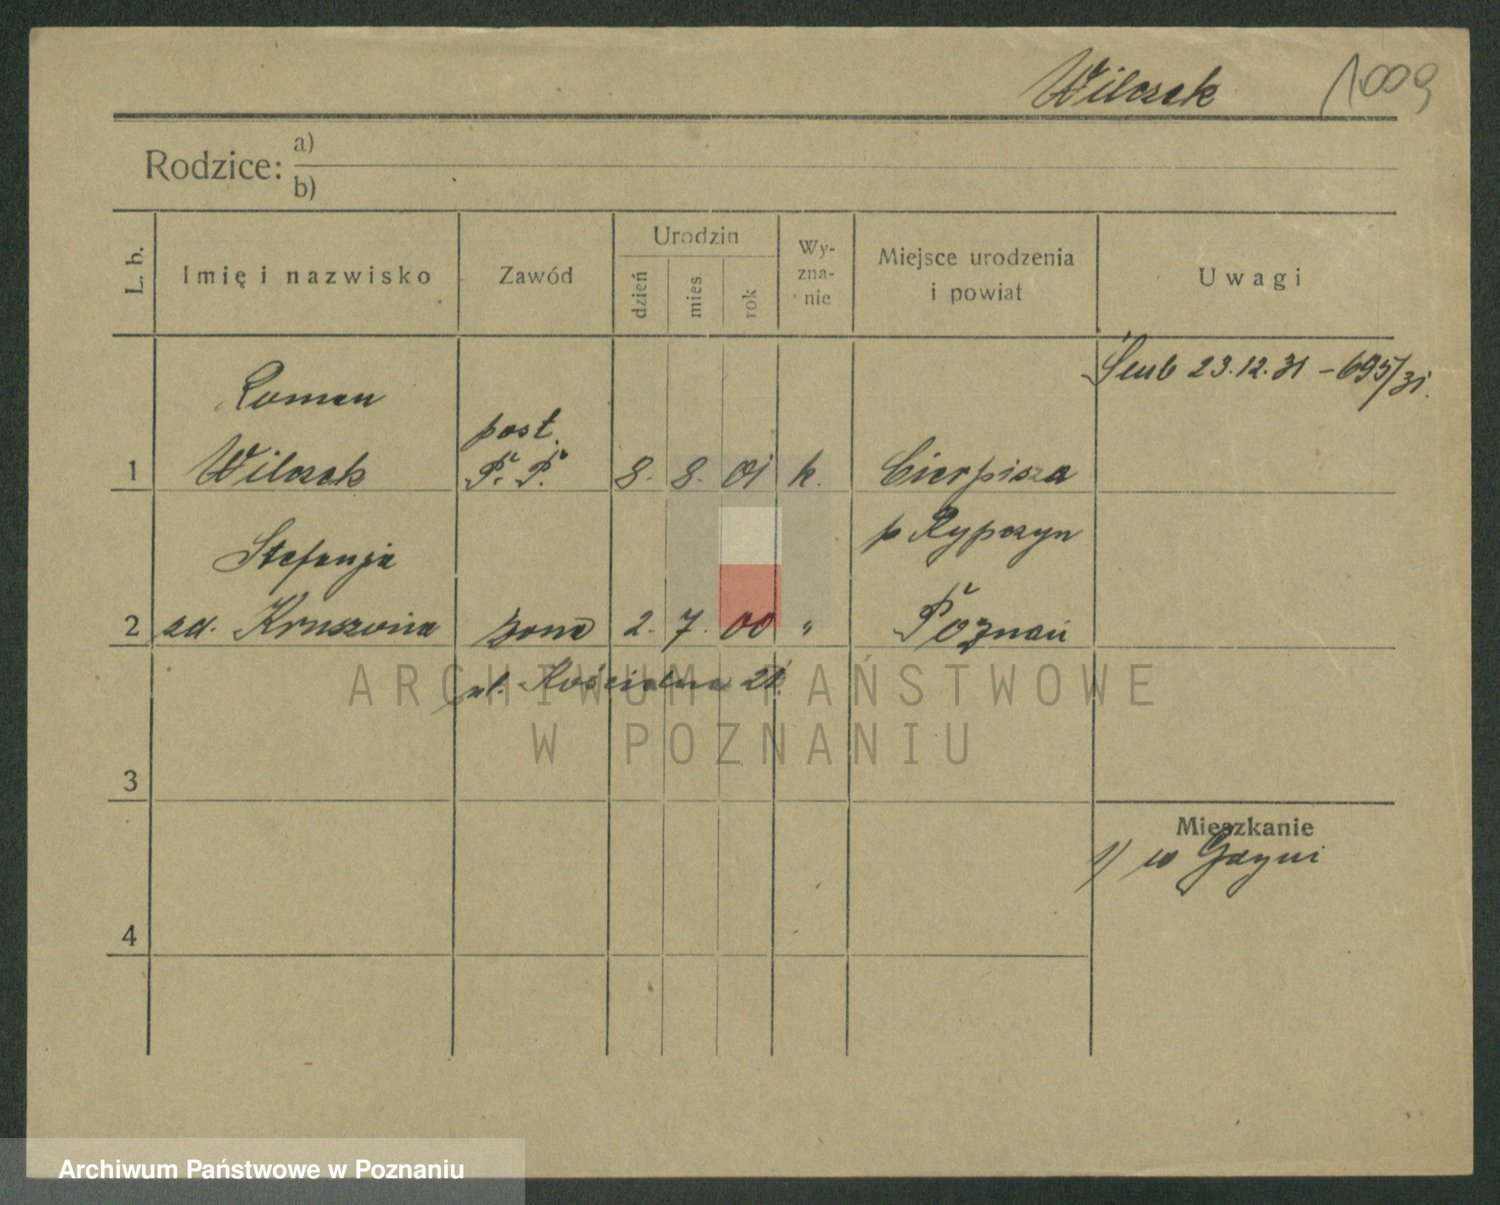 Wilczek 1009
Rodzice: a)
b)
L. b.
Imię i nazwisko
Zawód
Urodzin
dzień
mies.
rok
Wy-
zna-
nie
Miejsce urodzenia
i powiat
Uwagi
Ślub 23.12.31 – 695/31.
1
Roman
Wilczek
post.
P. P.
8. 8. 01 k.
Cierpisza
p Rypczyn
2
Stefanja
zd. Kruszona
żona
2. 7. 00 "
Poznań
ul. Kościelna
ARCHIWUM PAŃSTWOWE
W POZNANIU
3
Mieszkanie
1) w Gdyni
4
Archiwum Państwowe w Poznaniu